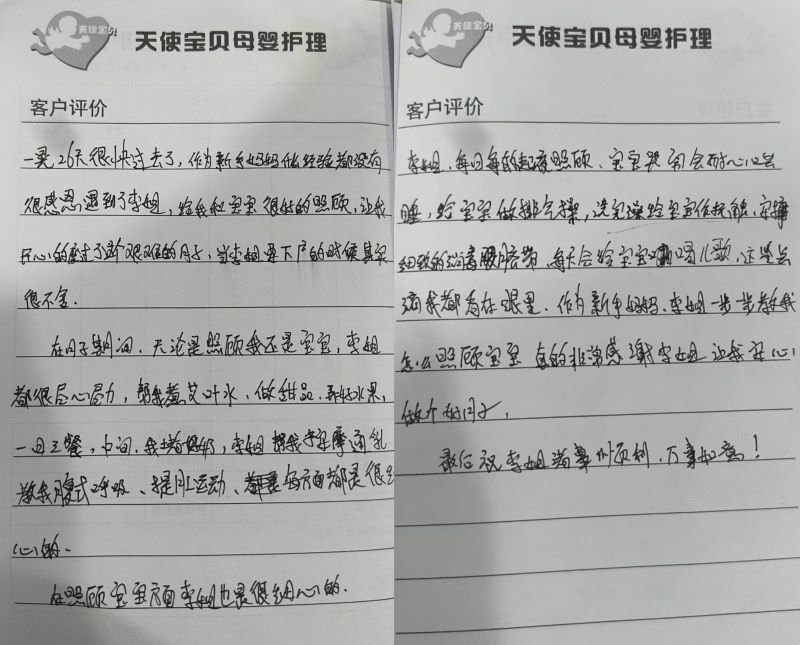 天使宝贝
天使宝贝母婴护理
客户评价
一晃26天很快过去了,作为新手妈妈什么经验都没有
很感恩遇到了李姐,给我和宝宝很好的照顾,让我
安心的度过了这个艰难的月子,当李姐要下户的时候真实
很不舍.
在月子期间,无论是照顾我还是宝宝,李姐
都很尽心尽力,帮我煮艾叶水、做甜品、弄好水果,
一日三餐,中间,我堵奶,李姐帮我按摩通乳
教我腹式呼吸、提肛运动、每方面都是很细
心的.
在照顾宝宝方面李姐也是很细心的.
天使宝贝
天使宝贝母婴护理
客户评价
李姐,每日每夜起夜照顾、宝宝哭闹会耐心哄
睡,给宝宝做排气操,洗完澡给宝宝做抚触、按摩
细致的消毒脐带,每天会给宝宝唱儿歌,这些点
滴我都看在眼里.作为新手妈妈,李姐一步步教我
怎么照顾宝宝 真的非常感谢李姐让我安心
做个好月子,
最后祝李姐端单顺利,万事如意!